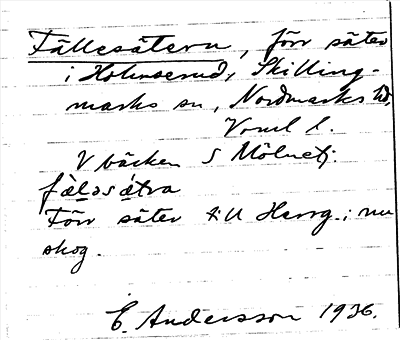 Fällesätern, förr säter
i Holmserud, Skilling-
marks sn, Nordmarks hd,
Vrml l.
V bäcken S Mölnetj.
fæ̀lǝsǽtra
Förr säter till Herrg.; nu
skog.
E. Andersson 1936.